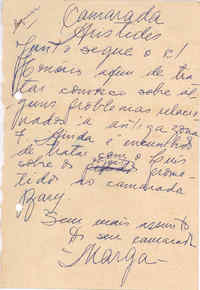 Camarada
Aristides
Junto segue o c/
Honório afim de tra
tar comvosco sobre al
guns problemas relacio
nados á antiga zona
7. Ainda é incumbido
de tratar com o Luís
sobre o prome
tido ao camarada
Bary.
Sem mais assunto
Do seu camarada
Marga